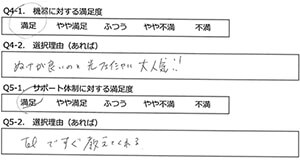 Q4-1. 機器に対する満足度
満足 やや満足 ふつう やや不満 不満
Q4-2. 選択理由(あれば)
ぬけが良いのと 大人気!!
Q5-1. サポート体制に対する満足度
満足 やや満足 ふつう やや不満 不満
Q5-2. 選択理由(あれば)
Tel ですぐ教えてくれる